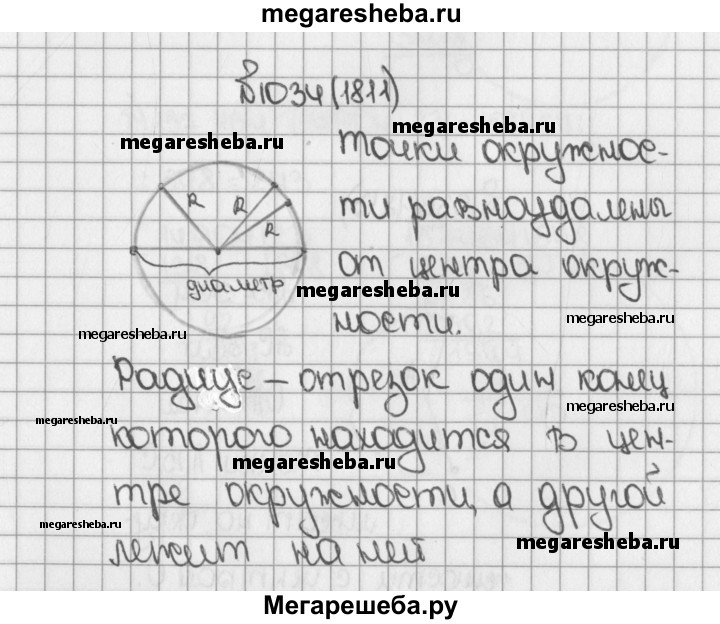 megaresheba.ru
№1034(1811)
megaresheba.ru
megaresheba.ru
точки окружнос-
ти равноудалены
от центра окруж-
ности.
R R R
диаметр
megaresheba.ru
megaresheba.ru
megaresheba.ru
Радиус – отрезок один конец
megaresheba.ru
megaresheba.ru
которого находится в цен-
megaresheba.ru
тре окружности, а другой
megaresheba.ru
лежит на ней
megaresheba.ru
Мегарешеба.ру